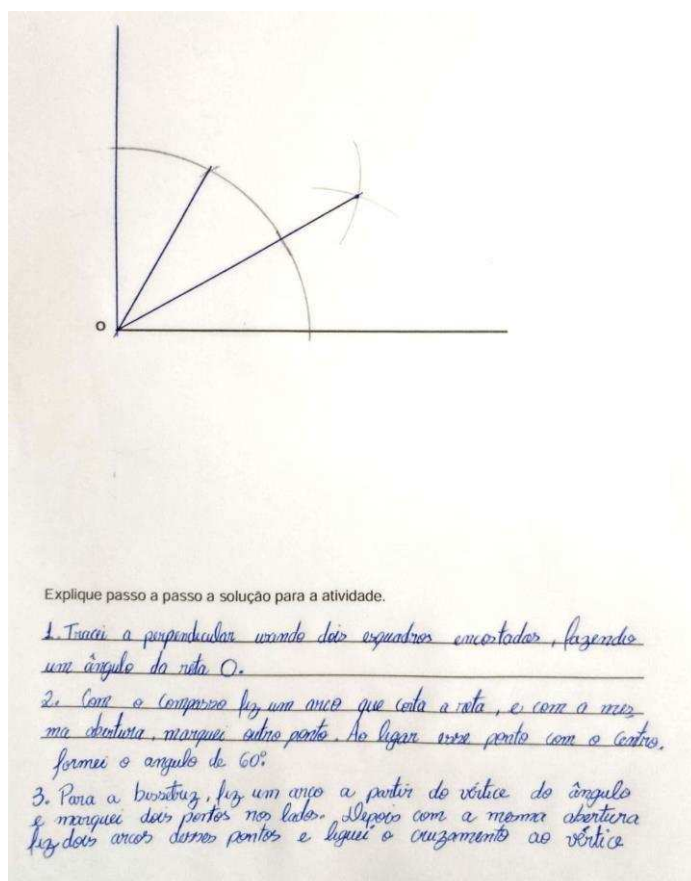 O
Explique passo a passo a solução para a atividade.
1. Tracei a perpendicular usando dois esquadros encostados, fazendo
um ângulo da reta O.
2. Com o compasso fiz um arco que corta a reta, e com a mes
ma abertura, marquei outro ponto. Ao ligar esse ponto com o centro,
formei o angulo de 60°.
3. Para a bissetriz, fiz um arco a partir do vértice do ângulo
e marquei dois pontos nos lados. Depois com a mesma abertura
fiz dois arcos desses pontos e liguei o cruzamento ao vértice